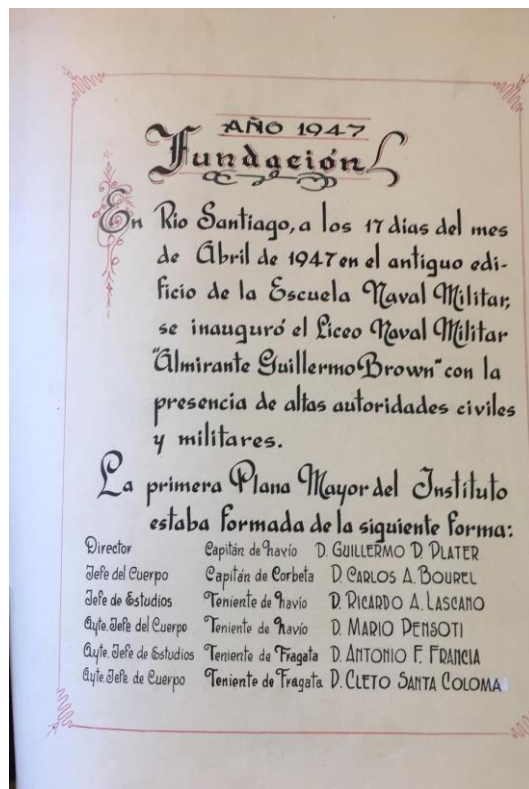 AÑO 1947
Fundación
En Rio Santiago, a los 17 dias del mes
de Abril de 1947 en el antiguo edi-
ficio de la Escuela Naval Militar,
se inauguró el Liceo Naval Militar
"Almirante Guillermo Brown" con la
presencia de altas autoridades civiles
y militares.
La primera Plana Mayor del Instituto
estaba formada de la siguiente forma:
Director Capitán de navío D. GUILLERMO D. PLATER
Jefe del Cuerpo Capitán de Corbeta D. CARLOS A. BOUREL
Jefe de Estudios Teniente de navío D. RICARDO A. LASCANO
Ayte. Jefe del Cuerpo Teniente de navío D. MARIO PENSOTI
Ayte. Jefe de Estudios Teniente de Fragata D. ANTONIO F. FRANCIA
Ayte Jefe de Cuerpo Teniente de Fragata D. CLETO SANTA COLOMA